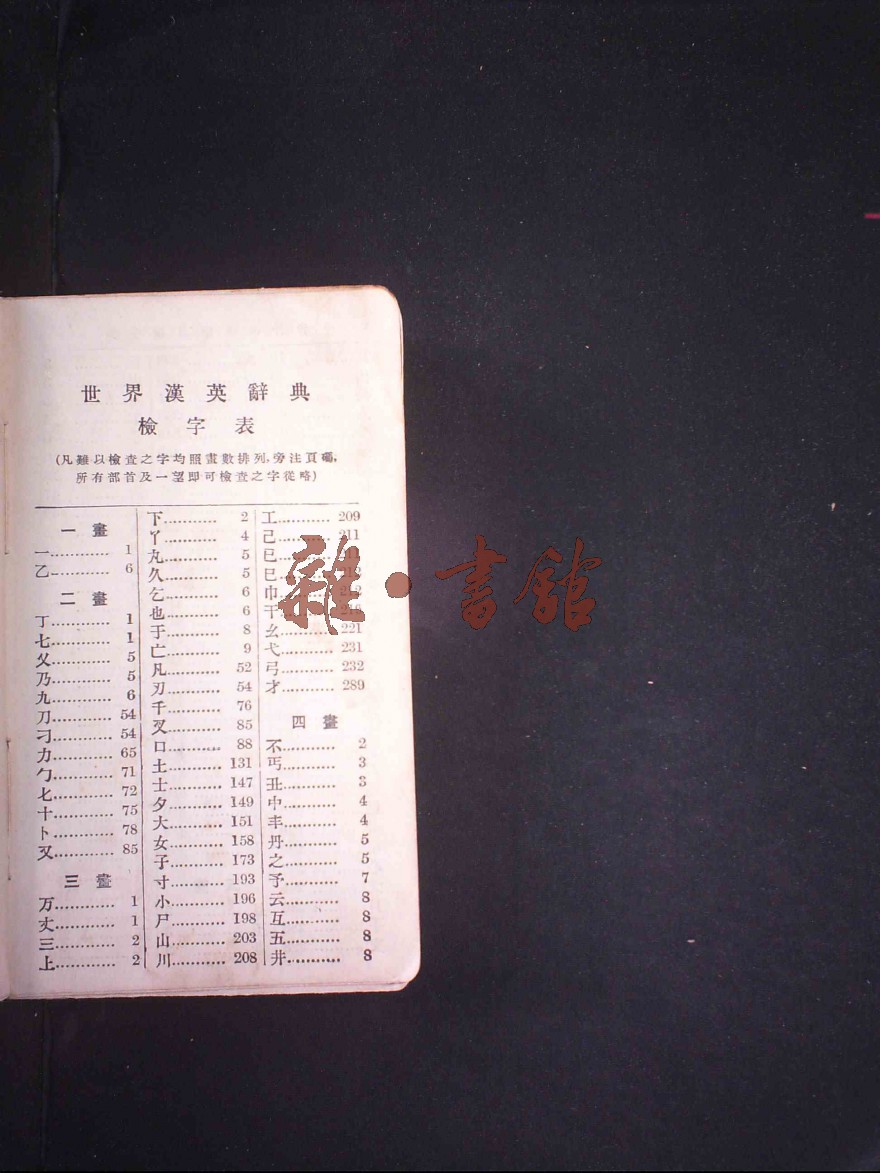 世界漢英辭典
檢字表
(凡難以檢查之字均照畫數排列,旁注頁碼,
所有部首及一望即可檢查之字從略)
一畫
一………… 1
乙………… 6
二畫
丁………… 1
七………… 1
乂………… 5
乃………… 5
九………… 6
刀………… 54
刁………… 54
力………… 65
勹………… 71
匕………… 72
十………… 75
卜………… 78
又………… 85
三畫
万………… 1
丈………… 1
三………… 2
上………… 2
下………… 2
丫………… 4
丸………… 5
久………… 5
乞………… 6
也………… 6
于………… 8
亡………… 9
凡………… 52
刃………… 54
千………… 76
叉………… 85
口………… 88
土………… 131
士………… 147
夕………… 149
大………… 151
女………… 158
子………… 173
寸………… 193
小………… 196
尸………… 198
山………… 203
川………… 208
工………… 209
己………… 211
已…………
巳…………
巾…………
干…………
幺………… 221
弋………… 231
弓………… 232
才………… 289
四畫
不………… 2
丐………… 3
丑………… 3
中………… 4
丰………… 4
丹………… 5
之………… 5
予………… 7
云………… 8
互………… 8
五………… 8
井………… 8
雜·書館